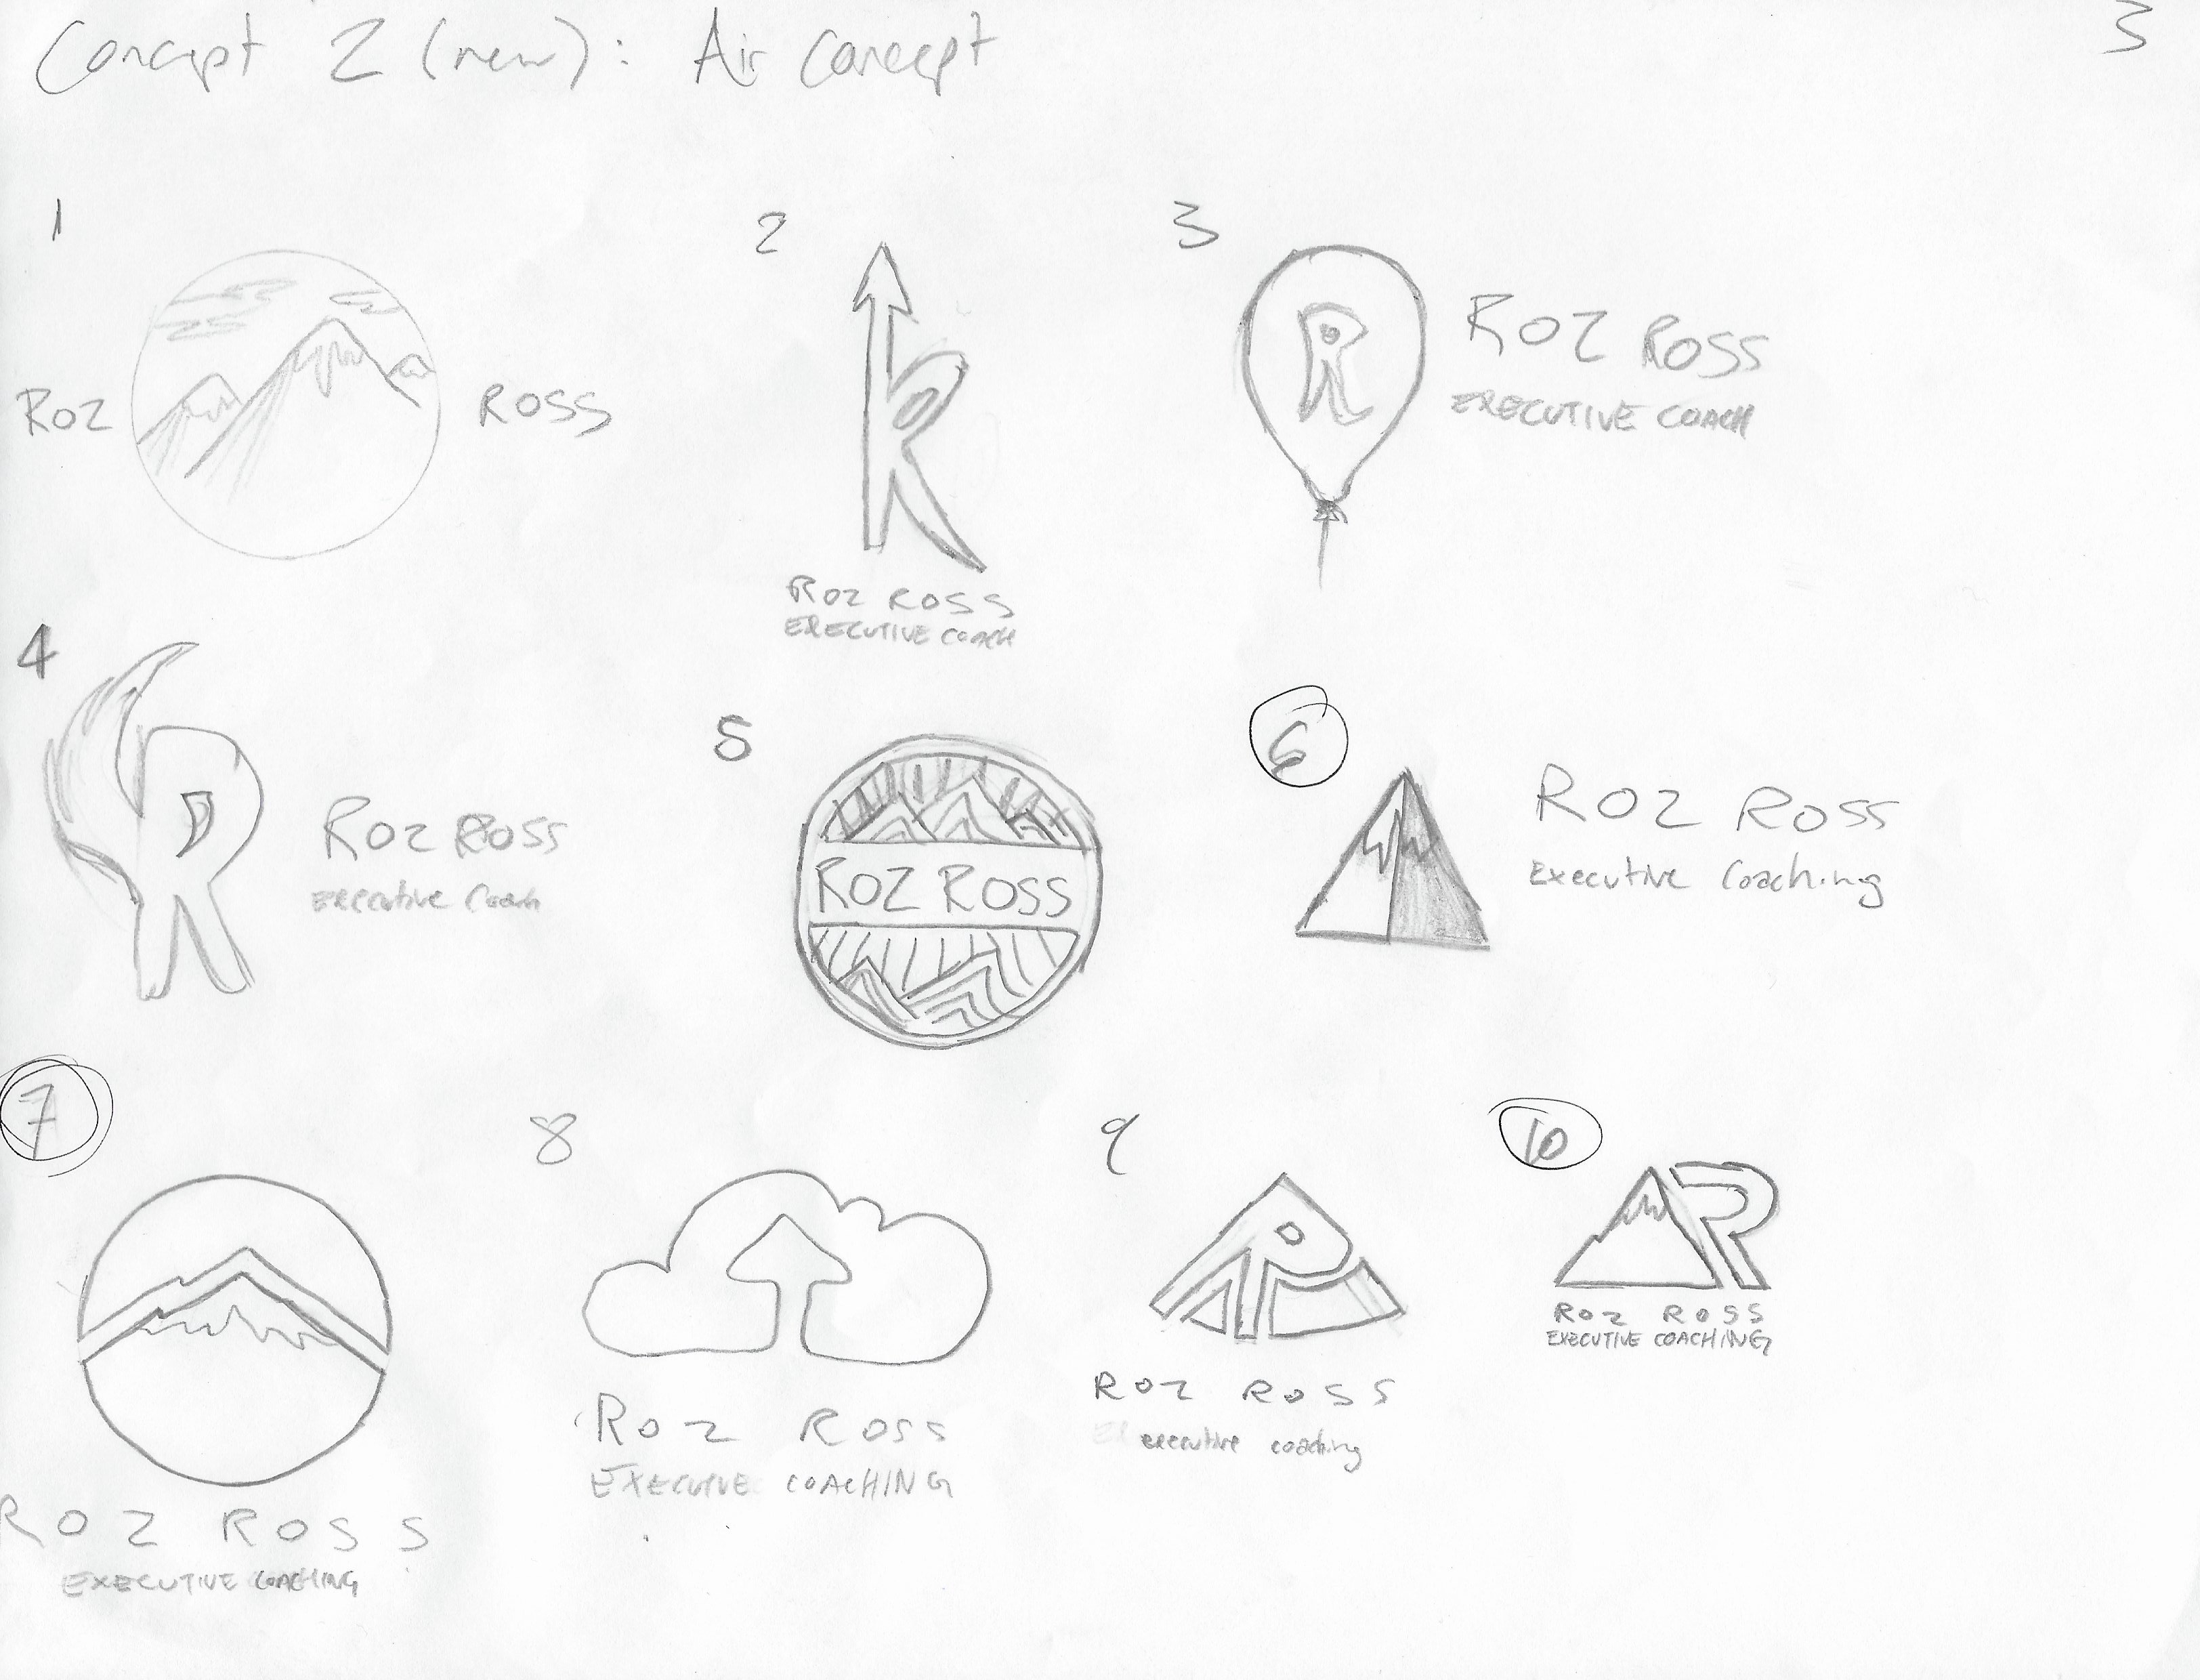 Concept 2 (new): Air Concept
3
1
ROZ ROSS
2
R
ROZ ROSS
EXECUTIVE COACH
3
R
ROZ ROSS
EXECUTIVE COACH
4
R
ROZ ROSS
Executive Coach
5
ROZ ROSS
6
ROZ ROSS
Executive Coaching
7
ROZ ROSS
EXECUTIVE COACHING
8
ROZ ROSS
EXECUTIVE COACHING
9
R
ROZ ROSS
executive coaching
10
R
ROZ ROSS
EXECUTIVE COACHING